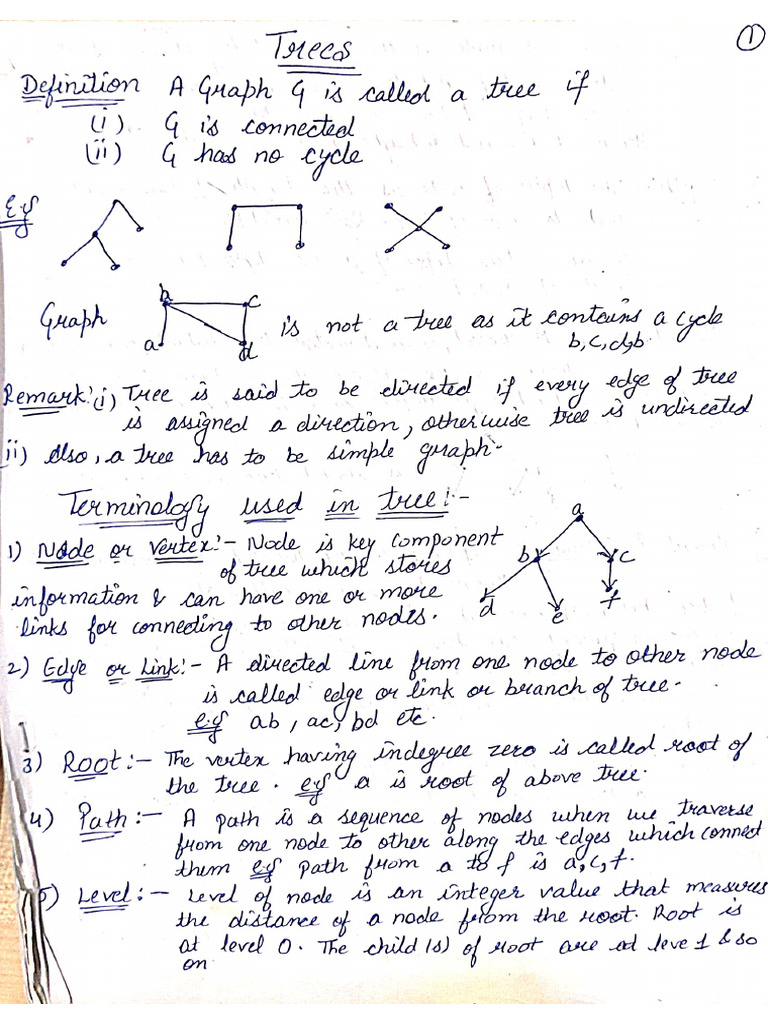 ①
Trees
Definition A Graph G is called a tree if
(i) G is connected
(ii) G has no cycle
E.g
b c
Graph is not a tree as it contains a cycle
a d b, c, d, b.
Remark:- (i) Tree is said to be directed if every edge of tree
is assigned a direction, otherwise tree is undirected
(ii) Also, a tree has to be simple graph.
Terminology used in tree:-
a
1) Node or Vertex:- Node is key component
b c
of tree which stores
d e f
information & can have one or more
links for connecting to other nodes.
2) Edge or Link:- A directed line from one node to other node
is called edge or link or branch of tree.
e.g ab, ac, bd etc.
3) Root:- The vertex having indegree zero is called root of
the tree. e.g a is root of above tree.
4) Path:- A path is a sequence of nodes when we traverse
from one node to other along the edges which connect
them e.g path from a to f is a, c, f.
5) Level:- Level of node is an integer value that measures
the distance of a node from the root. Root is
at level 0. The child(s) of root are at level 1 & so
on